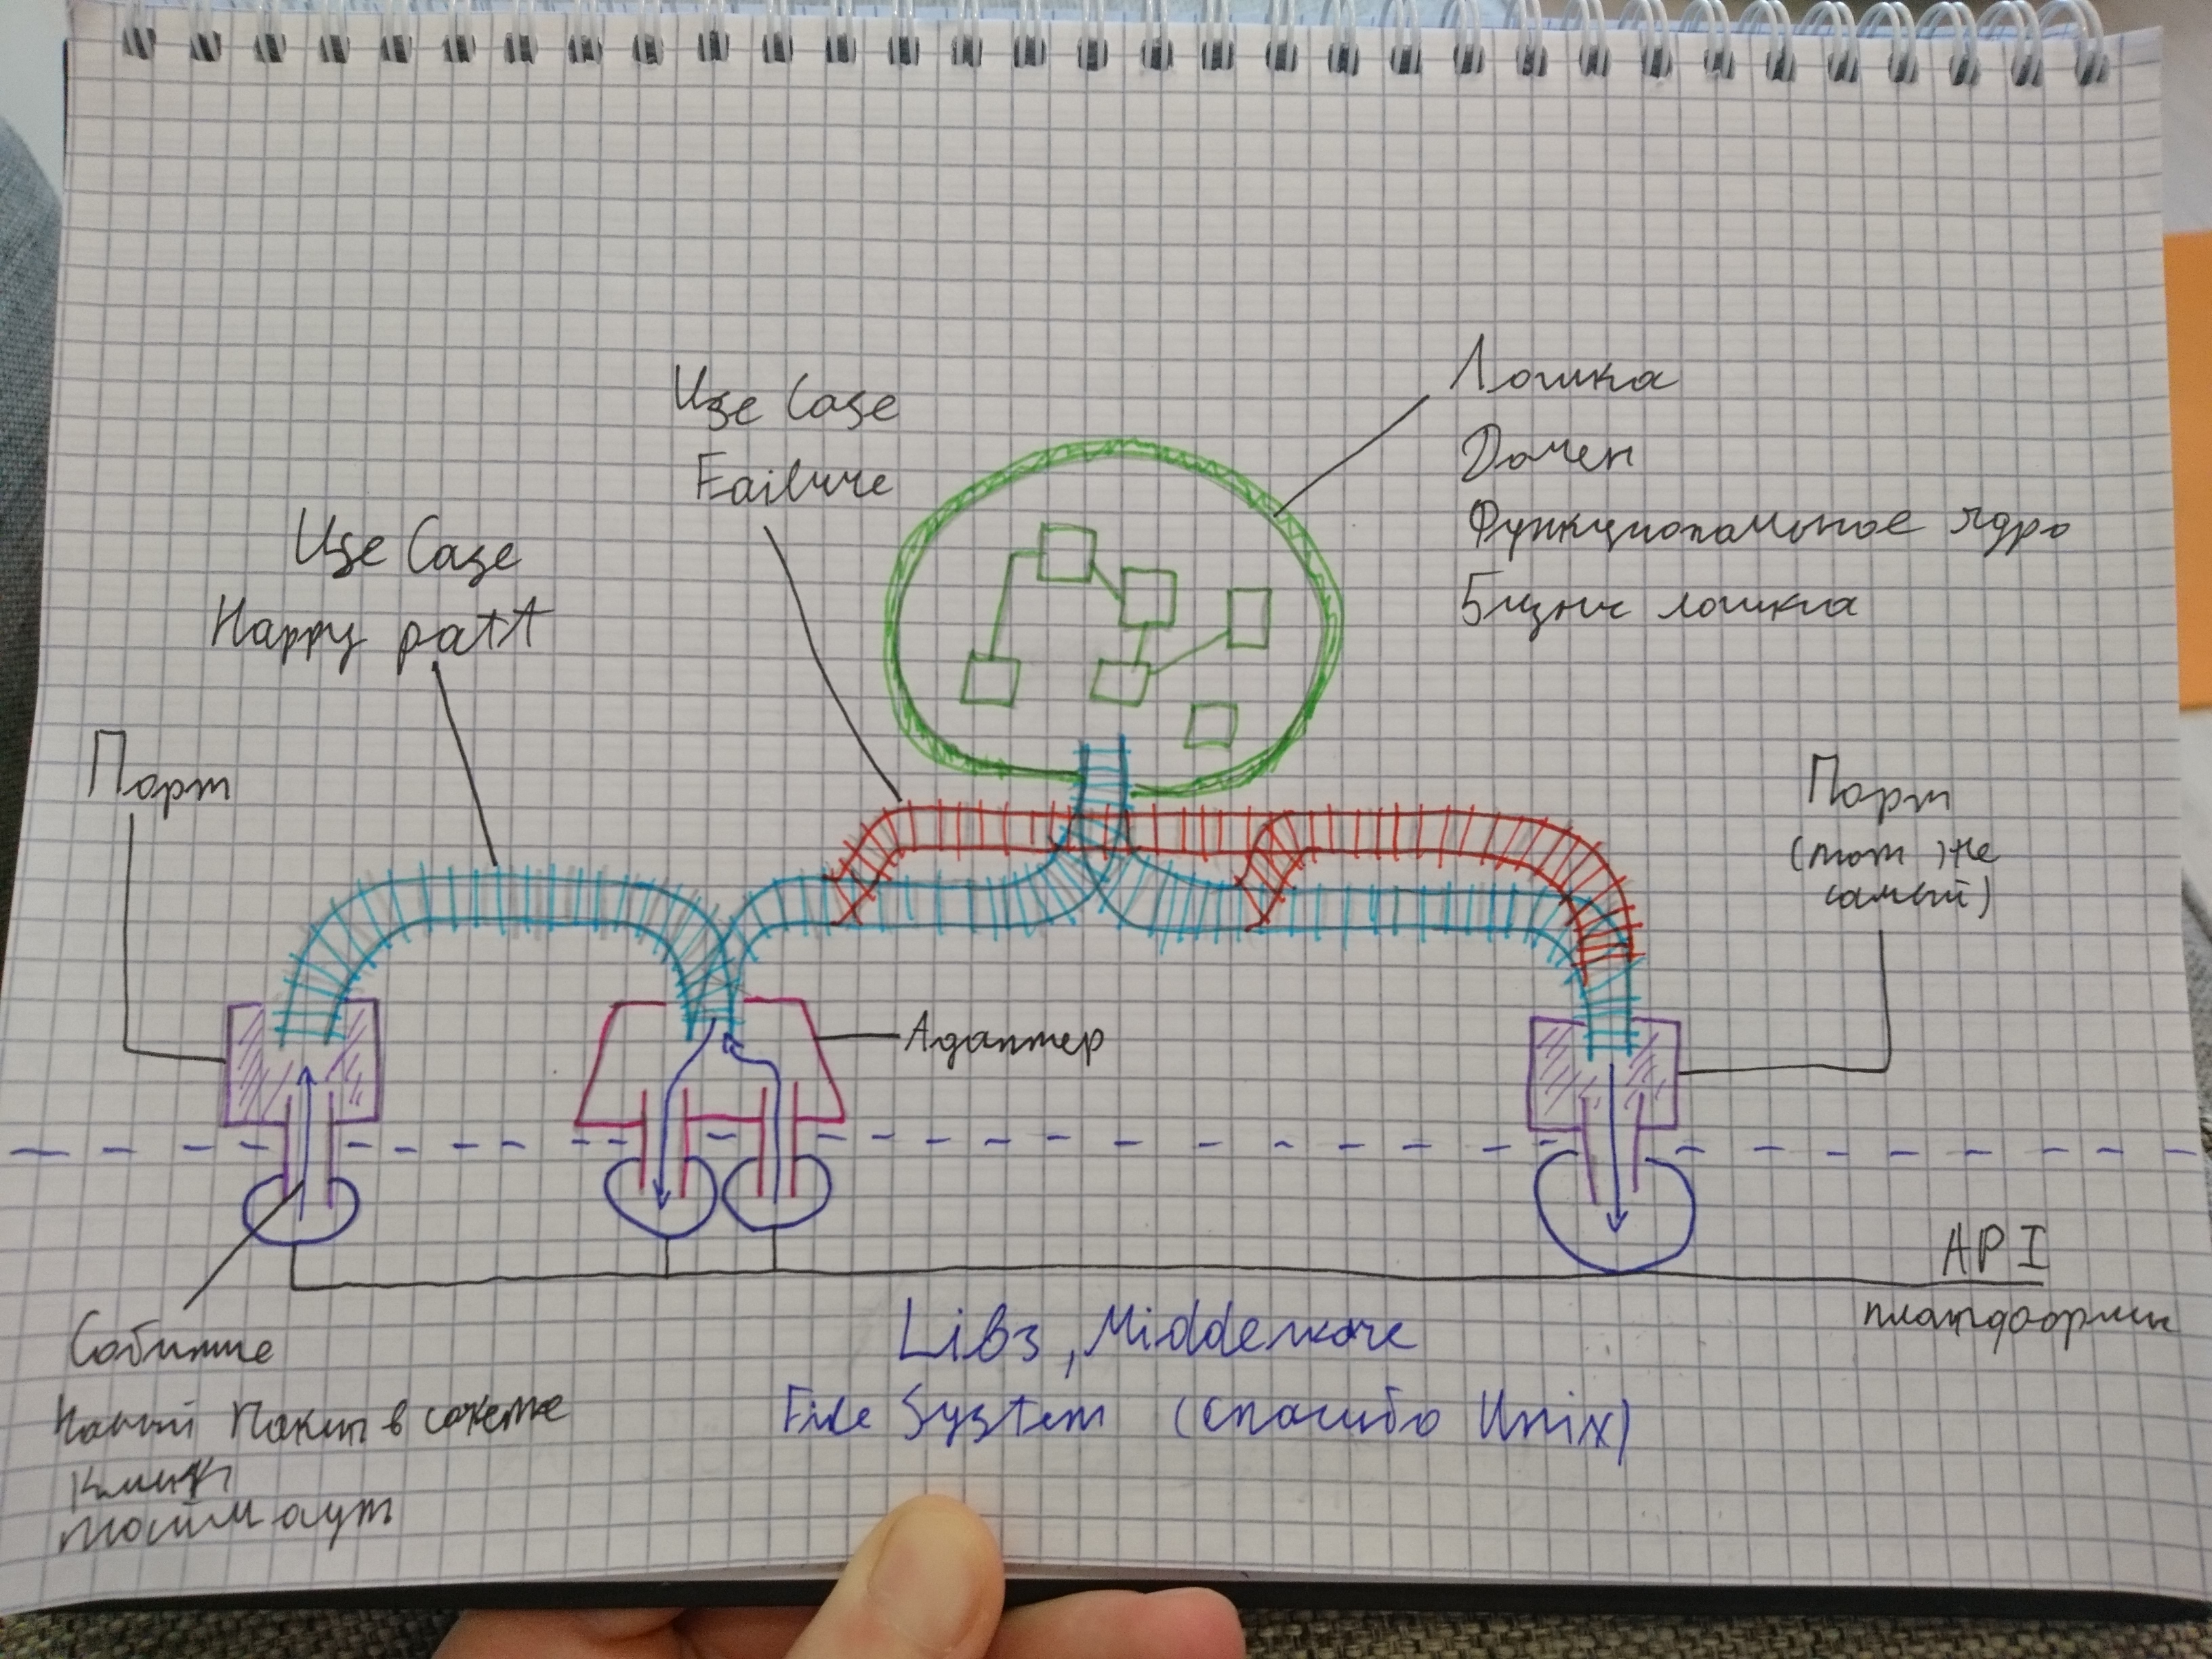 Use Case
Failure
Логика
Домен
Функциональное ядро
Бизнес логика
Use Case
Happy path
Порт
Порт
(тот же
самый)
Адаптер
API
платформы
Событие
Новый пакет в сокете
Клик
Тайм аут
Libs, Middleware
File System (спасибо Unix)